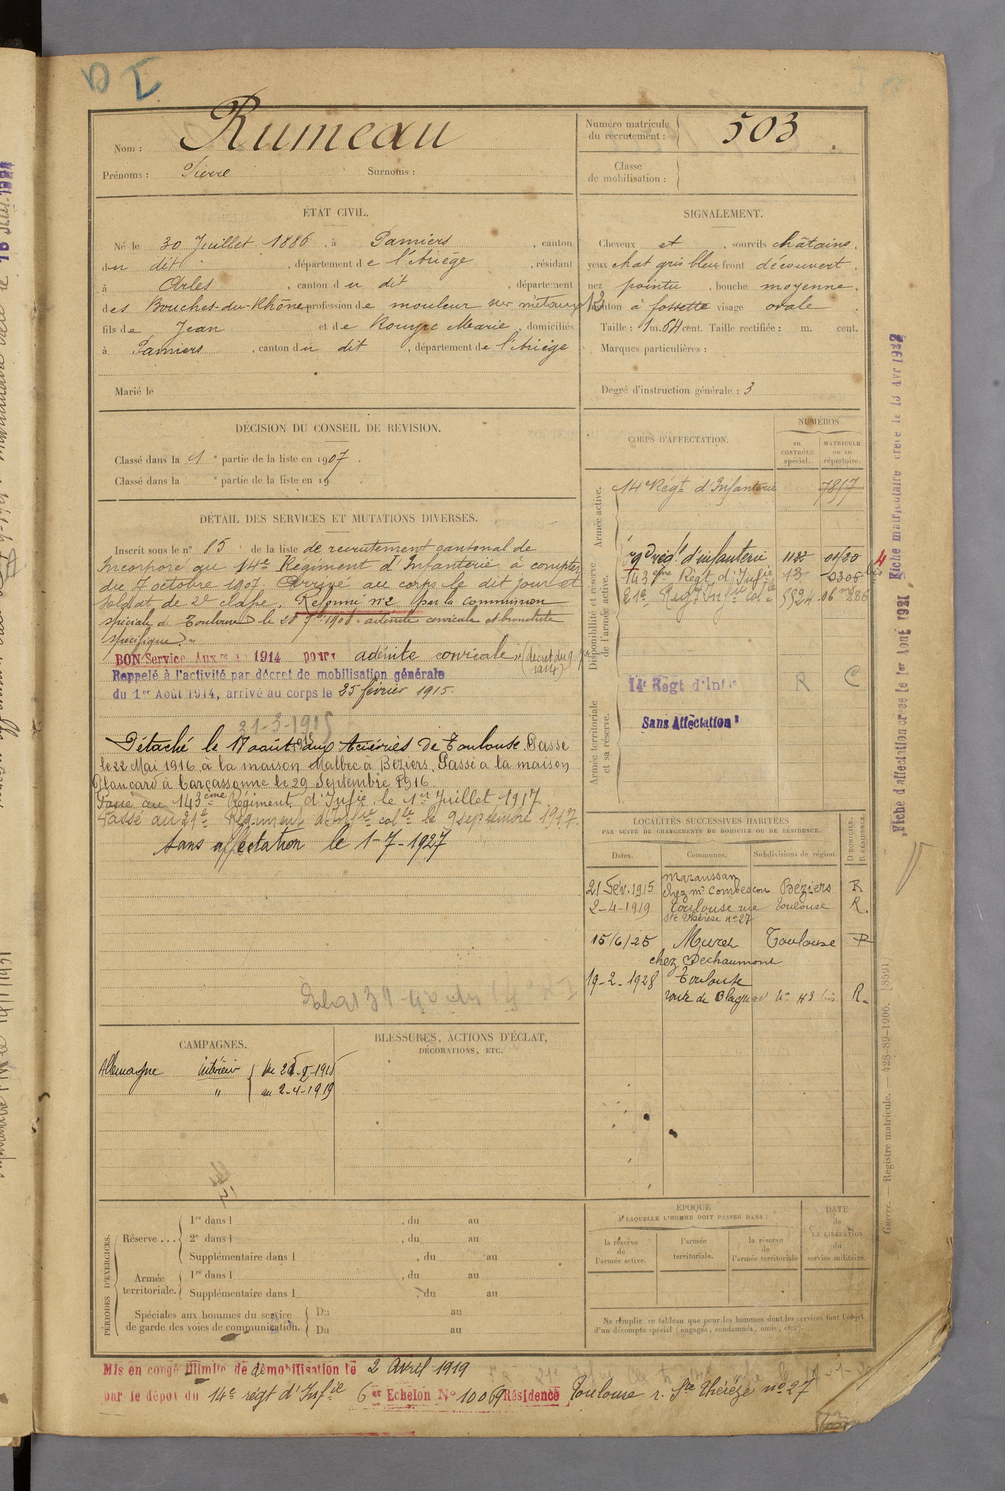 Nom : Rumeau
Prénoms : Pierre Surnoms :
Numéro matricule du recrutement : 503
Classe de mobilisation :
ÉTAT CIVIL.
Né le 30 Juillet 1886, à Pamiers, canton
du dit, département de l'Ariège, résidant
à Arles, canton du dit, département
des Bouches-du-Rhône profession de mouleur sur métaux
fils de Jean et de Rouyre Marie, domiciliés
à Pamiers, canton du dit, département de l'Ariège
Marié le
SIGNALEMENT.
Cheveux et, sourcils châtains,
yeux chat gris bleu front découvert,
nez pointu, bouche moyenne,
menton à fossette visage ovale
Taille : 1 m. 64 cent. Taille rectifiée : m. cent.
Marques particulières :
Degré d'instruction générale : 3
DÉCISION DU CONSEIL DE REVISION.
Classé dans la 1e partie de la liste en 1907.
Classé dans la e partie de la liste en 19
DÉTAIL DES SERVICES ET MUTATIONS DIVERSES.
Inscrit sous le n° 85 de la liste de recrutement cantonal de
Incorporé au 14e Régiment d'Infanterie à compter
du 7 octobre 1907. Arrivé au corps le dit jour et
soldat de 2e classe. Réformé n°2 par la commission
spéciale de Toulouse le 28 1908 adénite cervicale et bronchite
spécifique
BON Service Aux 1914 pour adénite cervicale (décret du 9
Rappelé à l'activité par décret de mobilisation générale
du 1er Août 1914, arrivé au corps le 25 février 1915.
21-3-1915
Détaché le 17 août 1915 aux Aciéries de Toulouse. Passé
le 22 Mai 1916 à la maison Malbec à Béziers. Passé à la maison
Plancard à Carcassonne le 29 Septembre 1916.
Passé au 143ème Régiment d'Infie le 1er Juillet 1917
Passé au 21e Régiment d'Infie colle le 9 septembre 1917.
Sans affectation le 1-7-1927
CORPS D'AFFECTATION.
NUMÉROS
AU CONTRÔLE spécial.
MATRICULE OU AU répertoire.
Armée active.
14e Régt d'Infanterie 7857
Disponibilité et réserve de l'armée active.
régt d'infanterie 1122
143ème Régt d'Infie 15 0306 bis
21e Régt Infie cole
Armée territoriale et sa réserve.
14e Régt d'Infie R C
Sans Affectation
LOCALITÉS SUCCESSIVES HABITÉES
PAR SUITE DE CHANGEMENTS DE DOMICILE OU DE RÉSIDENCE.
Dates. Communes. Subdivisions de région. D. DOMICILE. R. RÉSIDENCE.
21 Fév. 1915 Maraussan chez Mr Combescon Béziers R
2-4-1919 Toulouse rue Ste Thérèse n° 27 Toulouse R.
15/6/25 Muret chez Dechaumont Toulouse R
19-2-1928 Toulouse route de Blagnac n° 43 bis R.
CAMPAGNES.
Allemagne intérieur du 25-2-1915
" au 2-4-1919
BLESSURES, ACTIONS D'ÉCLAT,
DÉCORATIONS, ETC.
PÉRIODES D'EXERCICES.
Réserve ...
1re dans l , du au
2e dans l , du au
Supplémentaire dans l , du au
Armée territoriale.
1re dans l , du au
Supplémentaire dans l , du au
Spéciales aux hommes du service
de garde des voies de communication.
Du au
Du au
ÉPOQUE
À LAQUELLE L'HOMME DOIT PASSER DANS :
la réserve de l'armée active.
l'armée territoriale.
la réserve de l'armée territoriale
DATE de LA LIBÉRATION du service militaire.
Ne remplir ce tableau que pour les hommes dont les services font l'objet
d'un décompte spécial (engagés, condamnés, omis, etc.).
Mis en congé illimité de démobilisation le 2 Avril 1919
par le dépôt du 14e régt d'Infie 6er Echelon N° 10069 Résidence Toulouse r. Ste Thérèze n° 27
Fiche d'affectation créée le 1er Août 1921
Fiche matriculaire créée le 13 Avr 1932
Guerre. — Registre matricule. — 428-89-1906. [8591]